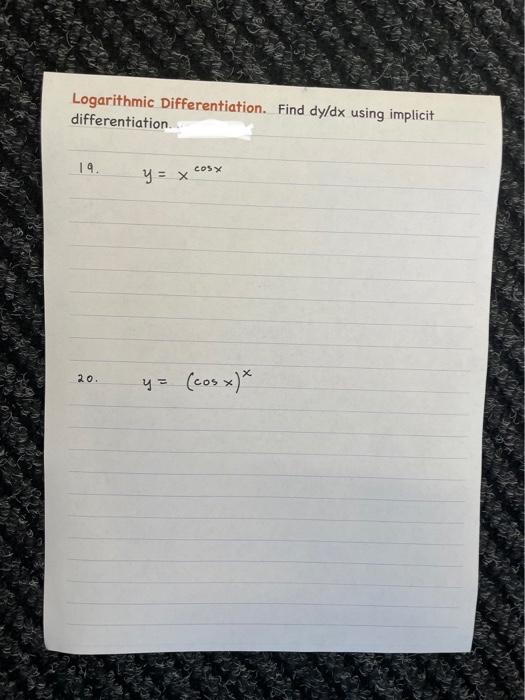 Logarithmic Differentiation. Find dy/dx using implicit
differentiation.
19. y = x^cosx
20. y = (cos x)^x